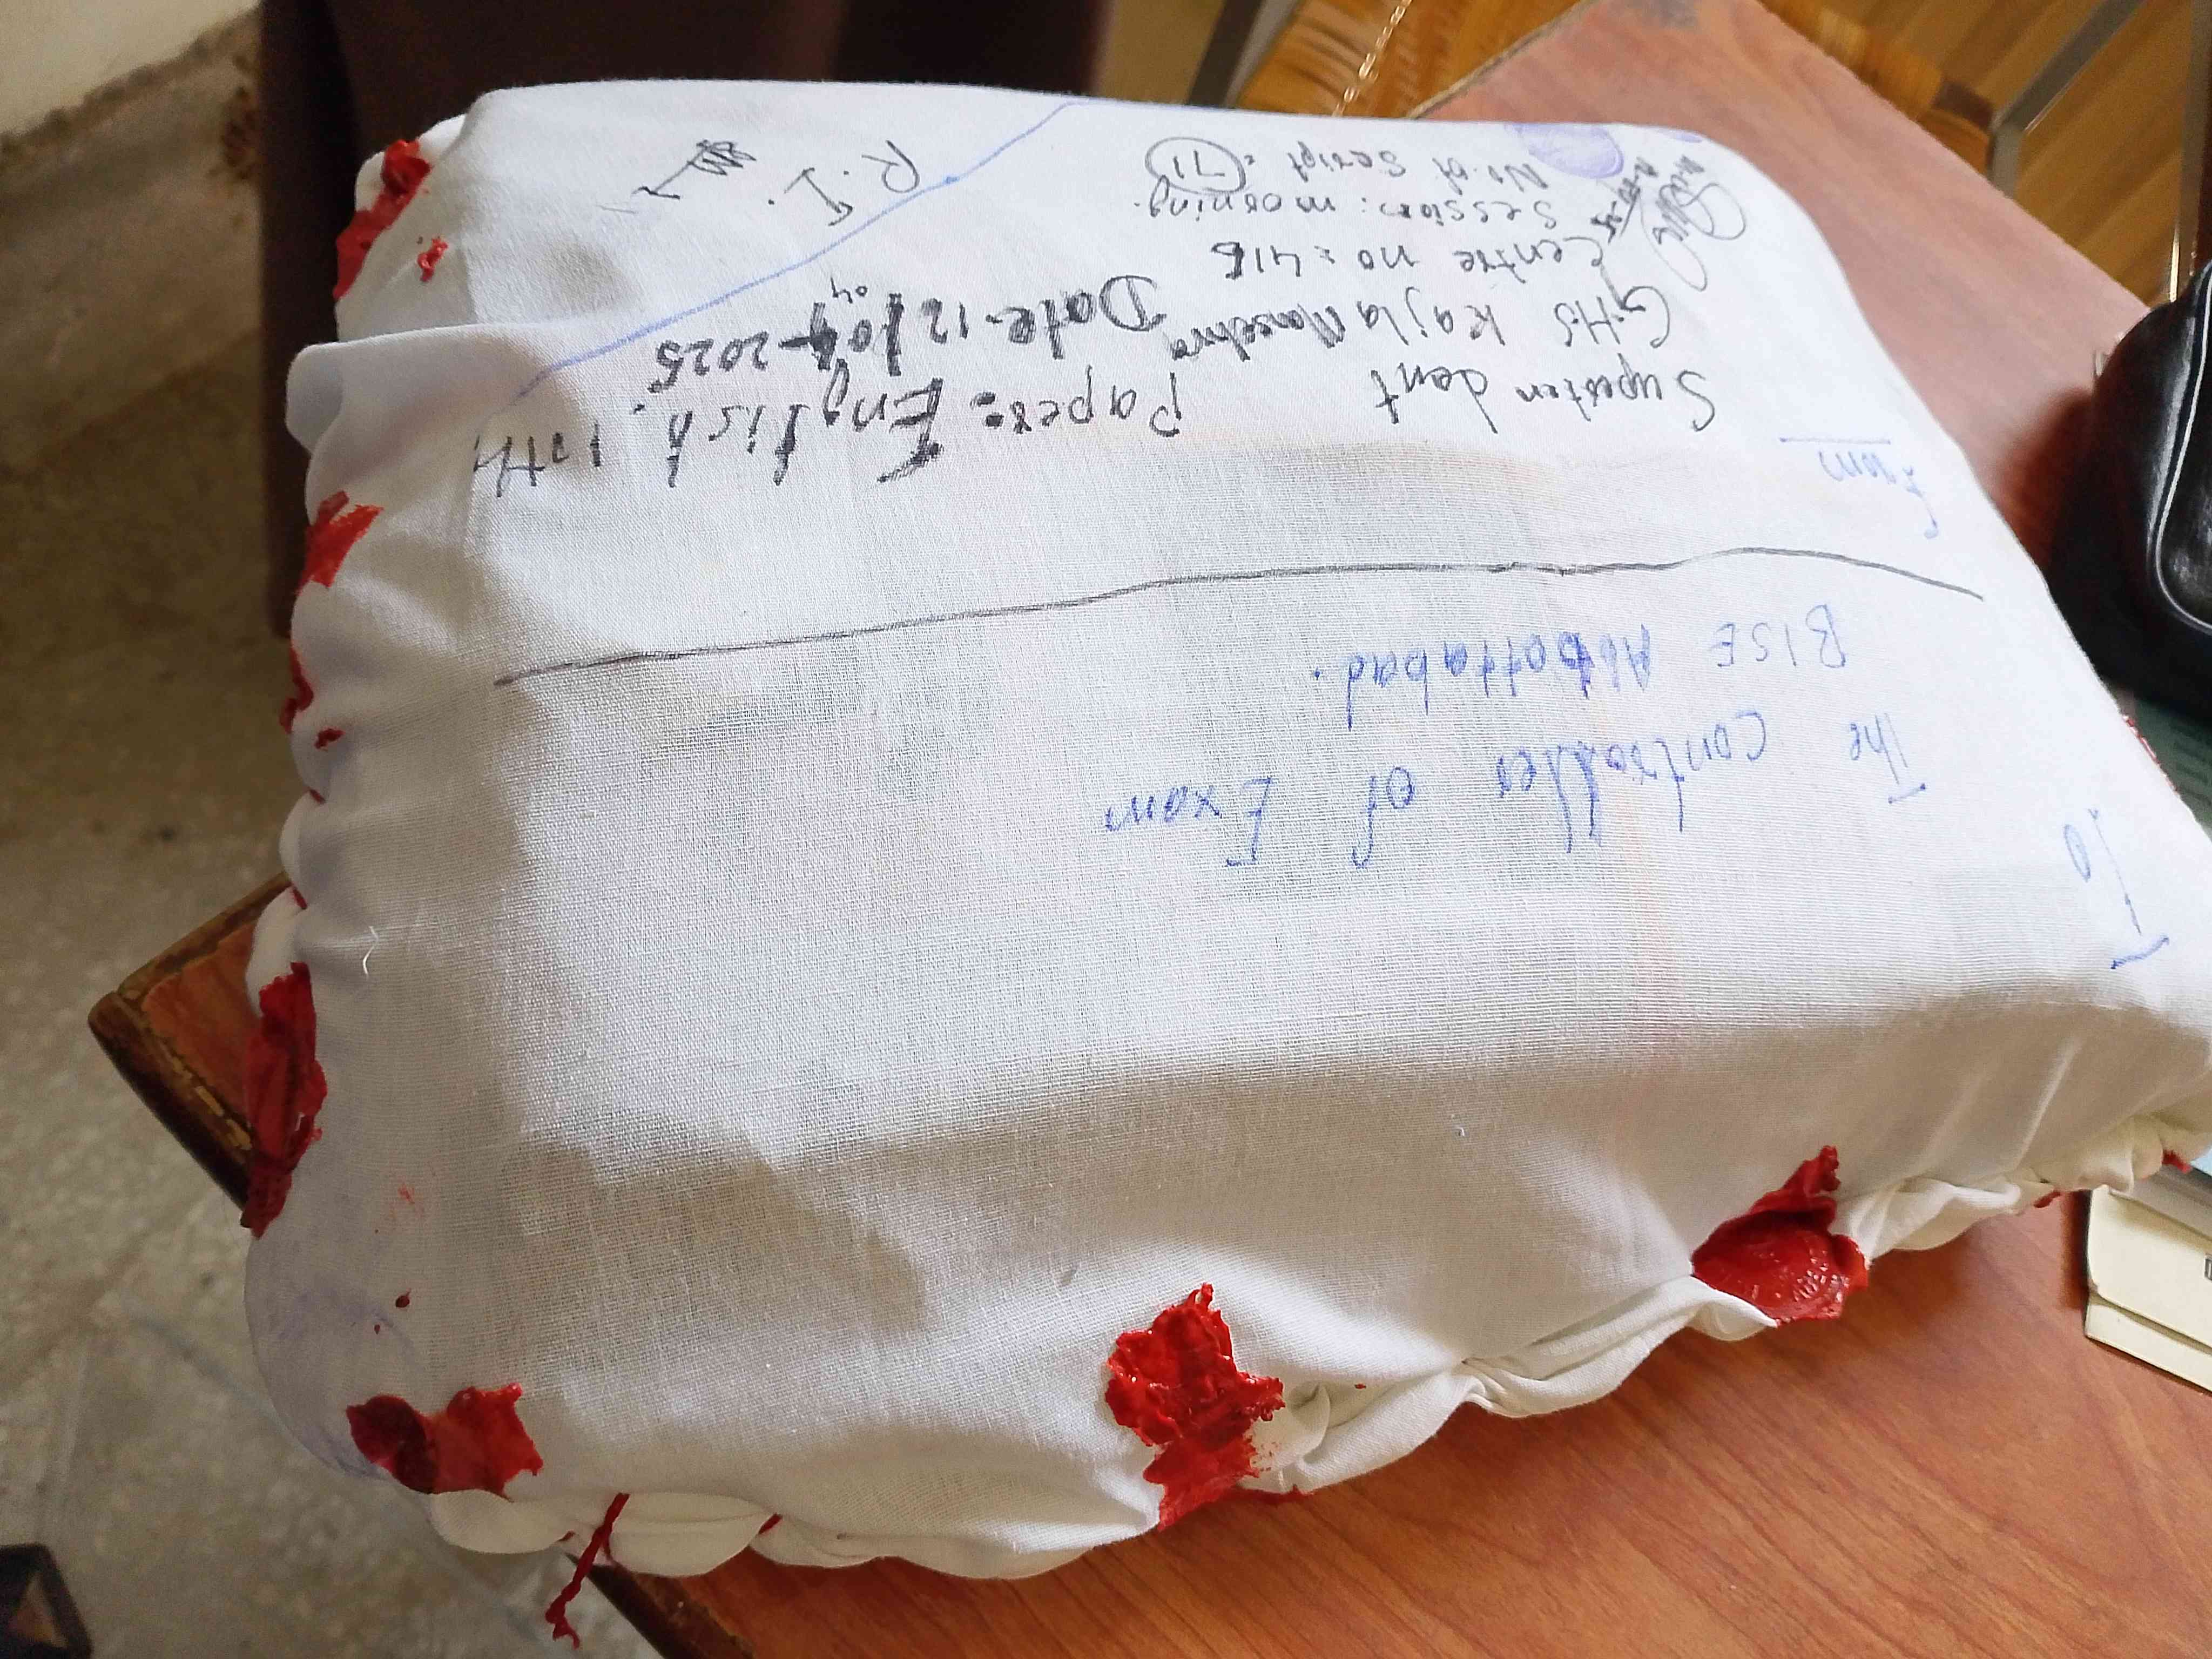 To
The controller of Exam
BISE Abbottabad.
From
Superten dent
GHS Kajla Mansehra
Centre no = 416
Session: morning.
No. of Script = 71
Paper: English 10th.
Date-12/04-2025
04
R.I.